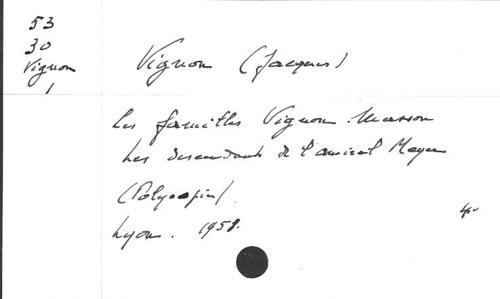 53
30
Vignon
1
Vignon (Jacques)
Les familles Vignon. Masson
Les descendants de l'amiral Mayer
(Polycopié)
4º
Lyon. 1958.